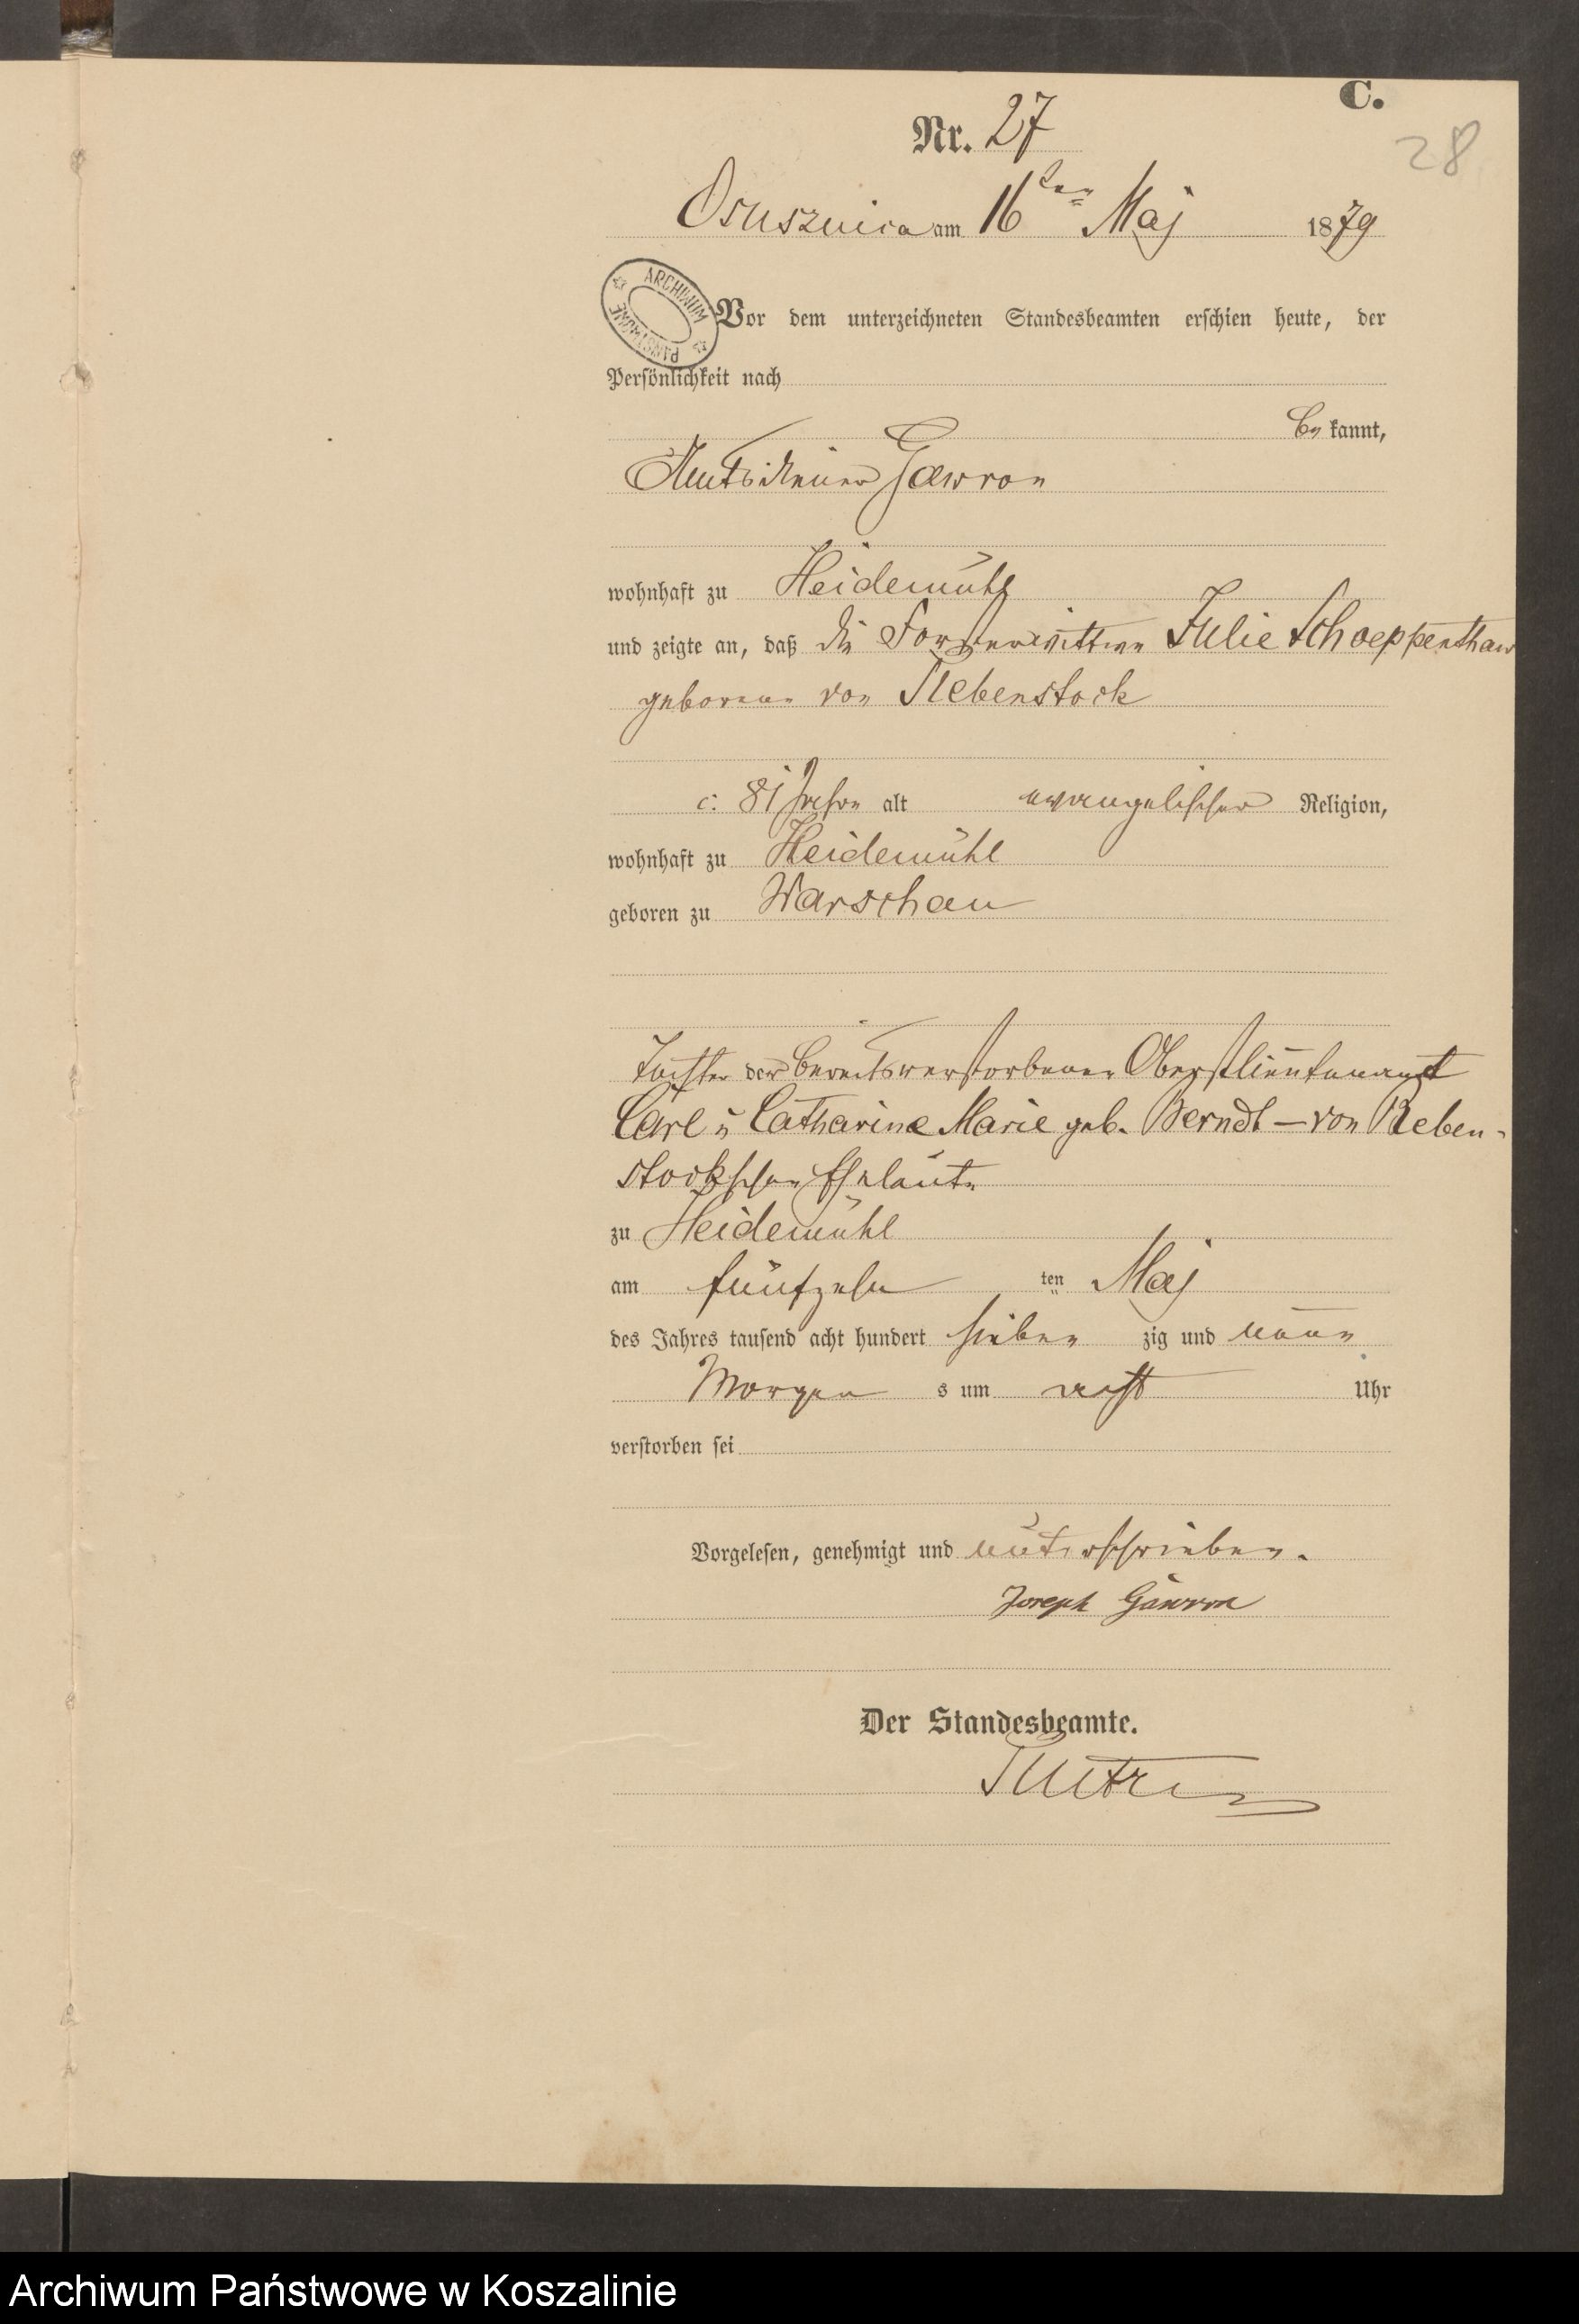 C.
28
Nr. 27
Osusznica am 16ten Maj 1879
ARCHIWUM PAŃSTWOWE
Vor dem unterzeichneten Standesbeamten erschien heute, der
Persönlichkeit nach
be kannt,
Amtsdiener Gawron
wohnhaft zu Heidemühl
und zeigte an, daß die Försterwittwe Julie Schoeppenthau
geborene von Rebenstock
c. 81 Jahre alt evangelischer Religion,
wohnhaft zu Heidemühl
geboren zu Warschau
Tochter der bereits verstorbenen Oberstlieutenant
Carl u Catharine Marie geb. Berndt – von Reben-
stockschen Eheleute
zu Heidemühl
am fünfzehn ten Maj
des Jahres tausend acht hundert sieben zig und neun
Morgen s um acht Uhr
verstorben sei
Vorgelesen, genehmigt und unterschrieben.
Joseph Gawron
Der Standesbeamte.
Archiwum Państwowe w Koszalinie